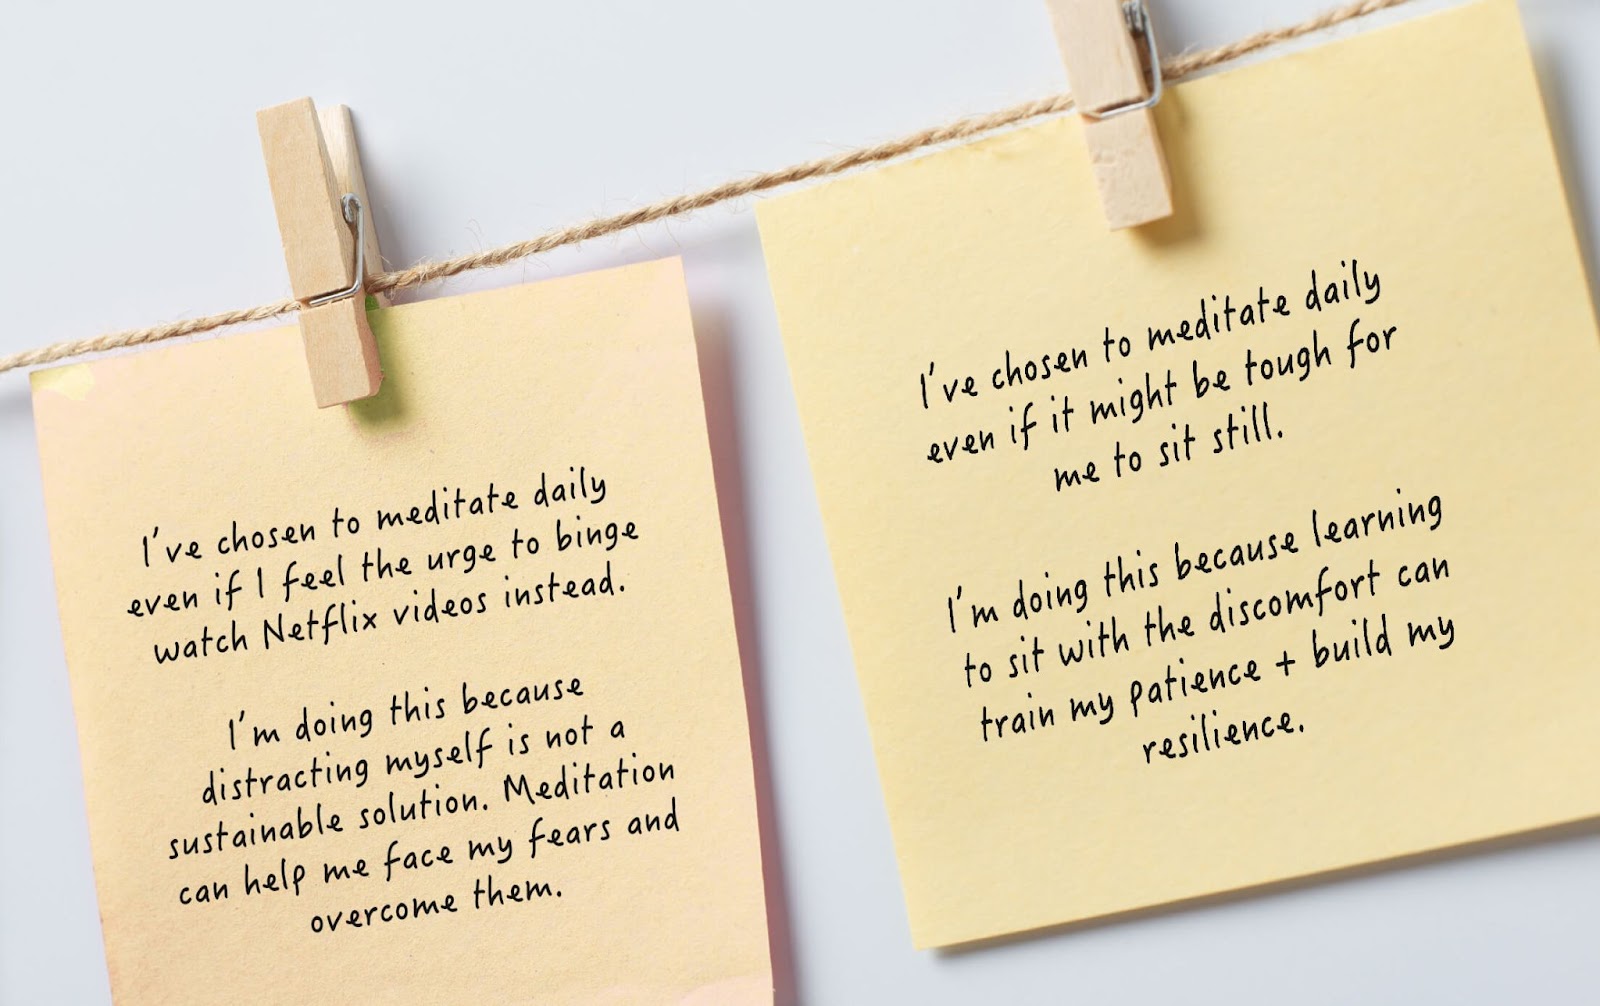 I've chosen to meditate daily
even if I feel the urge to binge
watch Netflix videos instead.
I'm doing this because
distracting myself is not a
sustainable solution. Meditation
can help me face my fears and
overcome them.
I've chosen to meditate daily
even if it might be tough for
me to sit still.
I'm doing this because learning
to sit with the discomfort can
train my patience + build my
resilience.